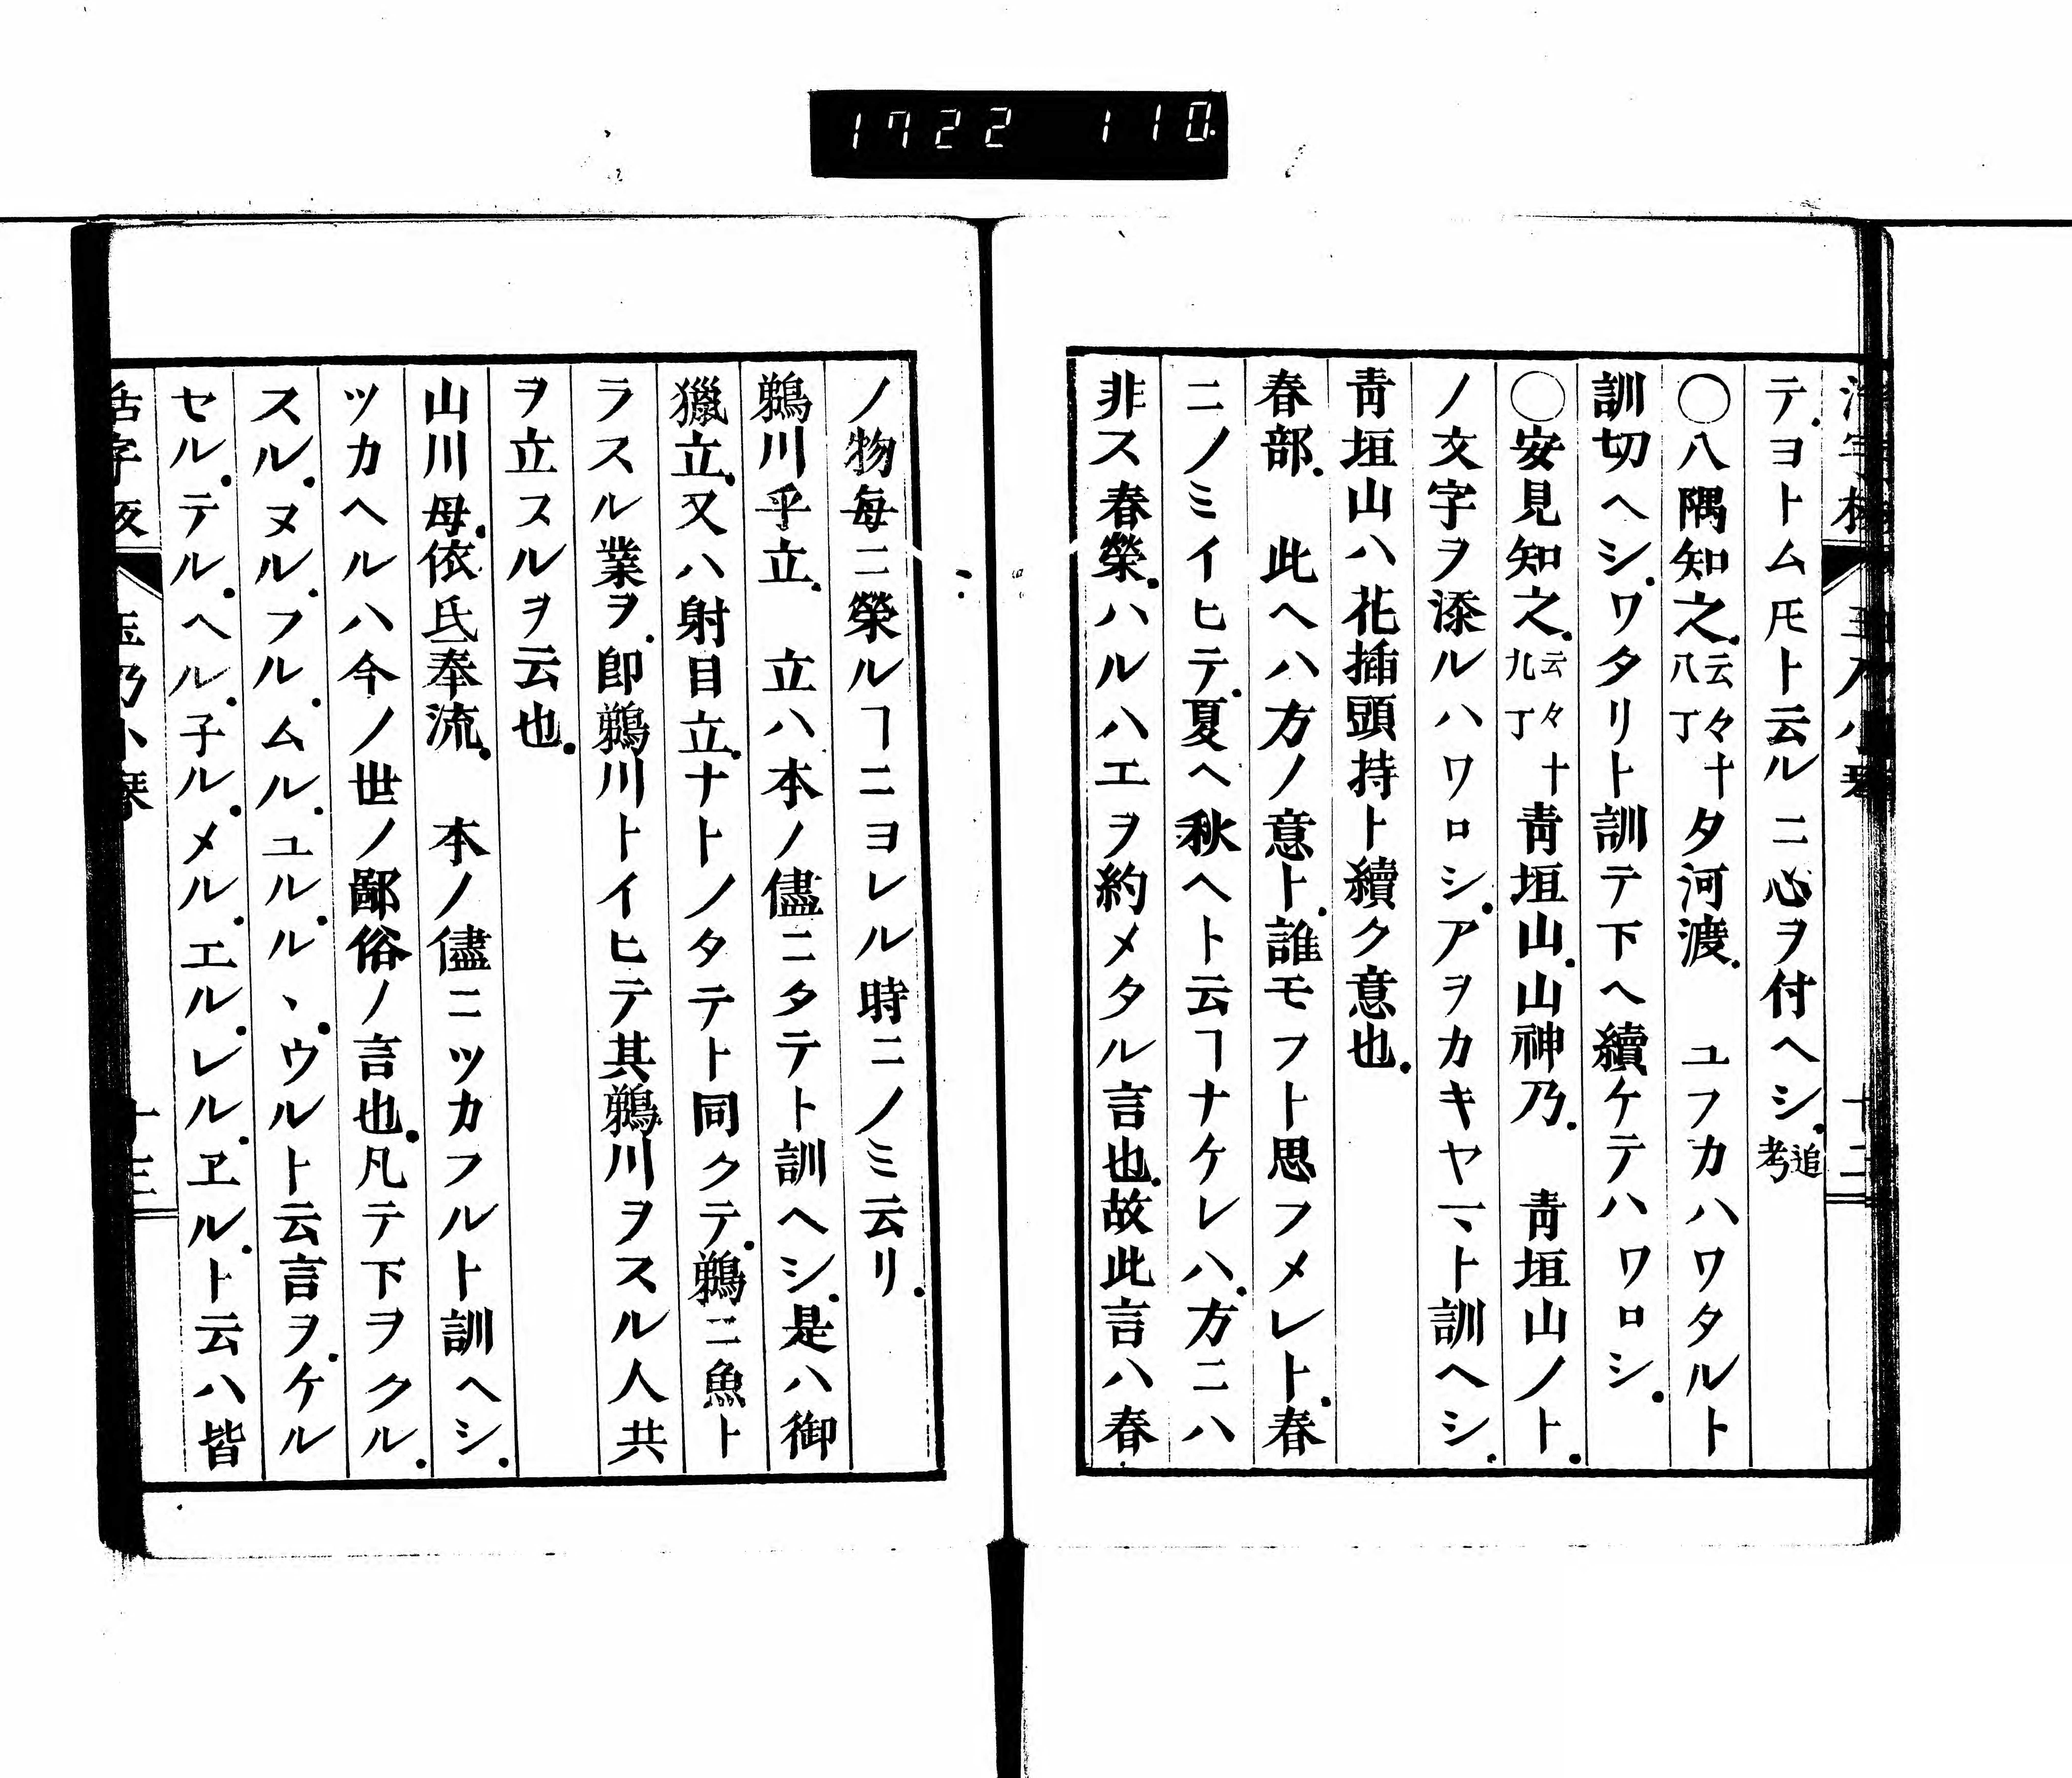 1722 110
テ.ヨトム𪜈ト云ルニ心ヲ付ヘシ.追考
〇八隅知之.云々八丁十タ河渡.　ユフカハワタルト
訓切ヘシ.ワタリト訓テ下ヘ續ケテハワロシ.
〇安見知之.云々九丁十靑垣山.山神乃.　靑垣山ノト.
ノ文字ヲ添ルハワロシ.アヲカキヤマト訓ヘシ.
靑垣山ハ花揷頭持ト續ク意也.
春部.　此ヘハ方ノ意ト.誰モフト思フメレト.春
ニノミイヒテ.夏ヘ秋ヘト云ヿナケレハ.方ニハ
非ス春榮.ハルハエヲ約メタル言也.故此言ハ春
ノ物每ニ榮ルヿニヨレル時ニノミ云リ.
鵜川乎立.　立ハ本ノ儘ニタテト訓ヘシ.是ハ御
獵立.又ハ射目立.ナトノタテト同クテ.鵜ニ魚ト
ラスル業ヲ.卽鵜川トイヒテ其鵜川ヲスル人共
ヲ立スルヲ云也.
山川母.依氐奉流.　本ノ儘ニツカフルト訓ヘシ.
ツカヘルハ今ノ世ノ鄙俗ノ言也.凡テ下ヲクル.
スル.ヌル.フル.ムル.ユル.ルヽ.ウルト云言ヲ.ケル
セル.テル.ヘル.子ル.メル.エル.レル.ヱル.ト云ハ皆
活字板　玉乃小琴　十三